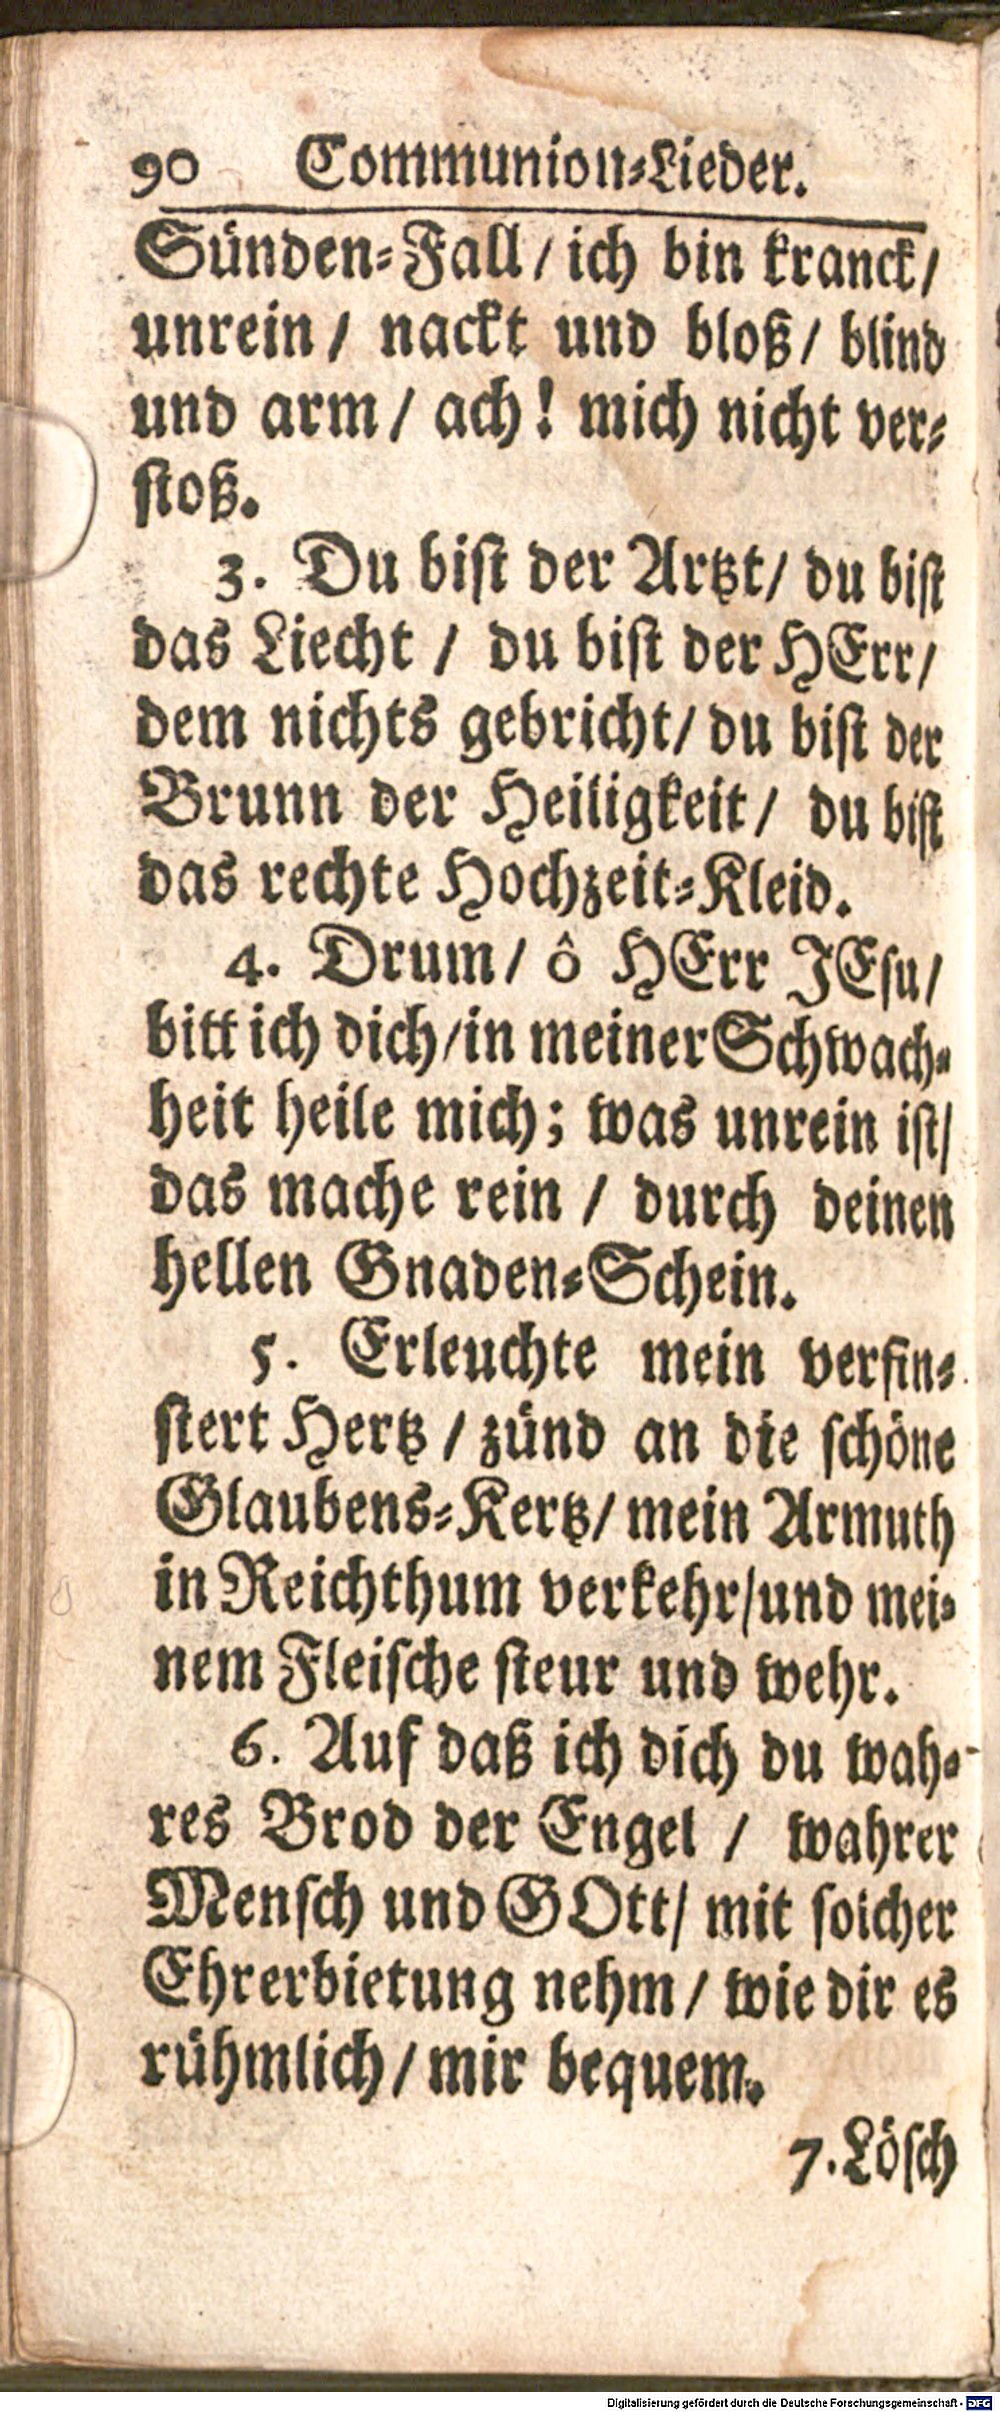 90 Communion-Lieder.
Sünden-Fall / ich bin kranck /
unrein / nackt und bloß / blind
und arm / ach! mich nicht ver-
stoß.
3. Du bist der Artzt / du bist
das Liecht / du bist der HErr /
dem nichts gebricht / du bist der
Brunn der Heiligkeit / du bist
das rechte Hochzeit-Kleid.
4. Drum / ô HErr JEsu /
bitt ich dich / in meiner Schwach-
heit heile mich; was unrein ist /
das mache rein / durch deinen
hellen Gnaden-Schein.
5. Erleuchte mein verfin-
stert Hertz / zünd an die schöne
Glaubens-Kertz / mein Armuth
in Reichthum verkehr / und mei-
nem Fleische steur und wehr.
6. Auf daß ich dich du wah-
res Brod der Engel / wahrer
Mensch und GOtt / mit solcher
Ehrerbietung nehm / wie dir es
rühmlich / mir bequem.
7. Lösch
Digitalisierung gefördert durch die Deutsche Forschungsgemeinschaft - DFG